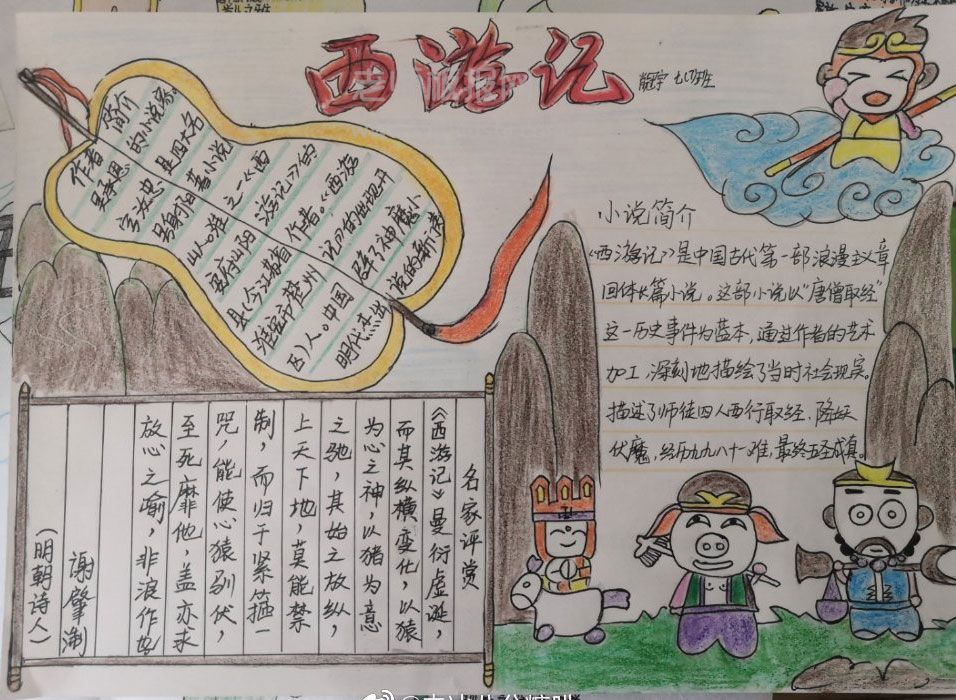 西游记
七(7)班
作者
简介
吴承恩
的小说家。
字汝忠
是四大名
号射阳
著小说
山人。淮
之一《西
安府山阳
游记》的
县(今江苏省
作者。《西游
淮安市楚州
记》的出现开
区)人。中国
辟了神魔小
明代杰出
说的新门类
小说简介
《西游记》是中国古代第一部浪漫主义章
回体长篇小说。这部小说以“唐僧取经”
这一历史事件为蓝本,通过作者的艺术
加工,深刻地描绘了当时社会现实。
描述了师徒四人西行取经、降妖
伏魔,经历九九八十一难,最终五圣成真。
名家评赏
《西游记》曼衍虚诞,
而其纵横变化,以猿
为心之神,以猪为意
之驰,其始之放纵,
上天下地,莫能禁
制,而归于紧箍一
咒,能使心猿驯伏,
至死靡他,盖亦求
放心之喻,非浪作也
谢肇淛
(明朝诗人)